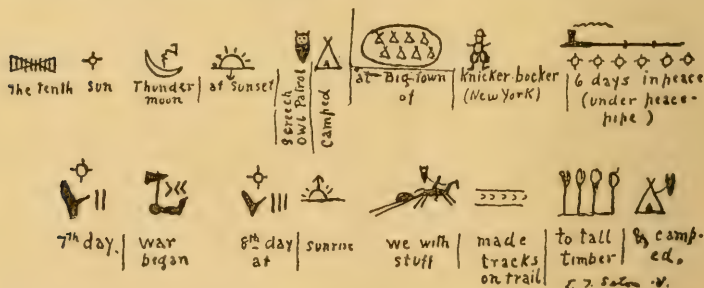 The Tenth Sun Thunder moon at Sunset Screech Owl Patrol camped at Big Town of Knicker-bocker (New York) 6 days in peace (under peace-pipe)
7th day. war began 8th day at sunrise we with stuff made tracks on trail to tall timber & camp-ed.
E.T. Seton